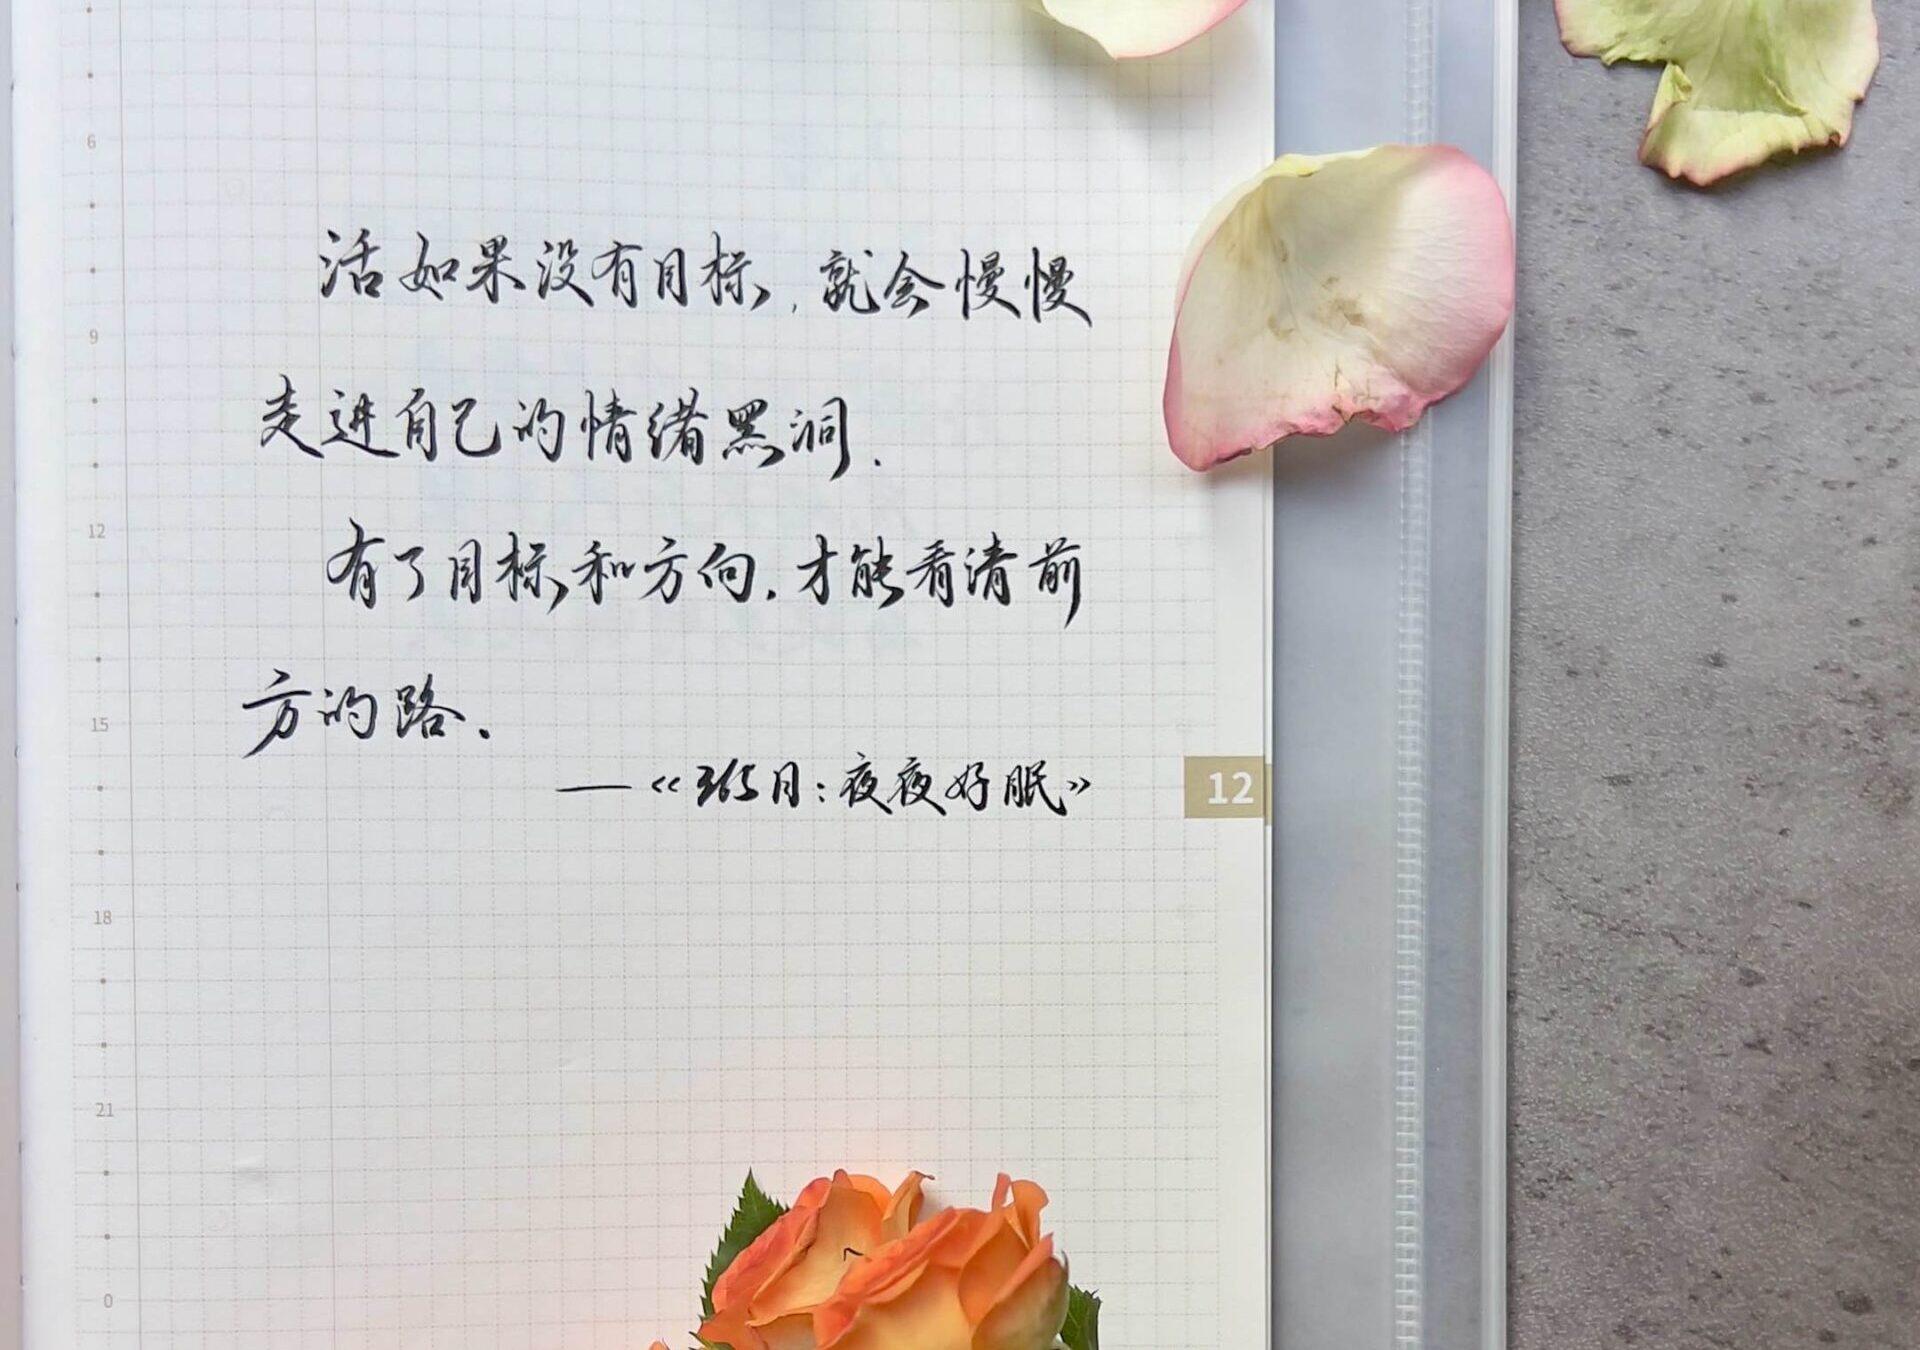 6
活如果没有目标,就会慢慢
9
走进自己的情绪黑洞.
12
有了目标和方向.才能看清前
15
方的路.
——《365日:夜夜好眠》
12
18
21
0